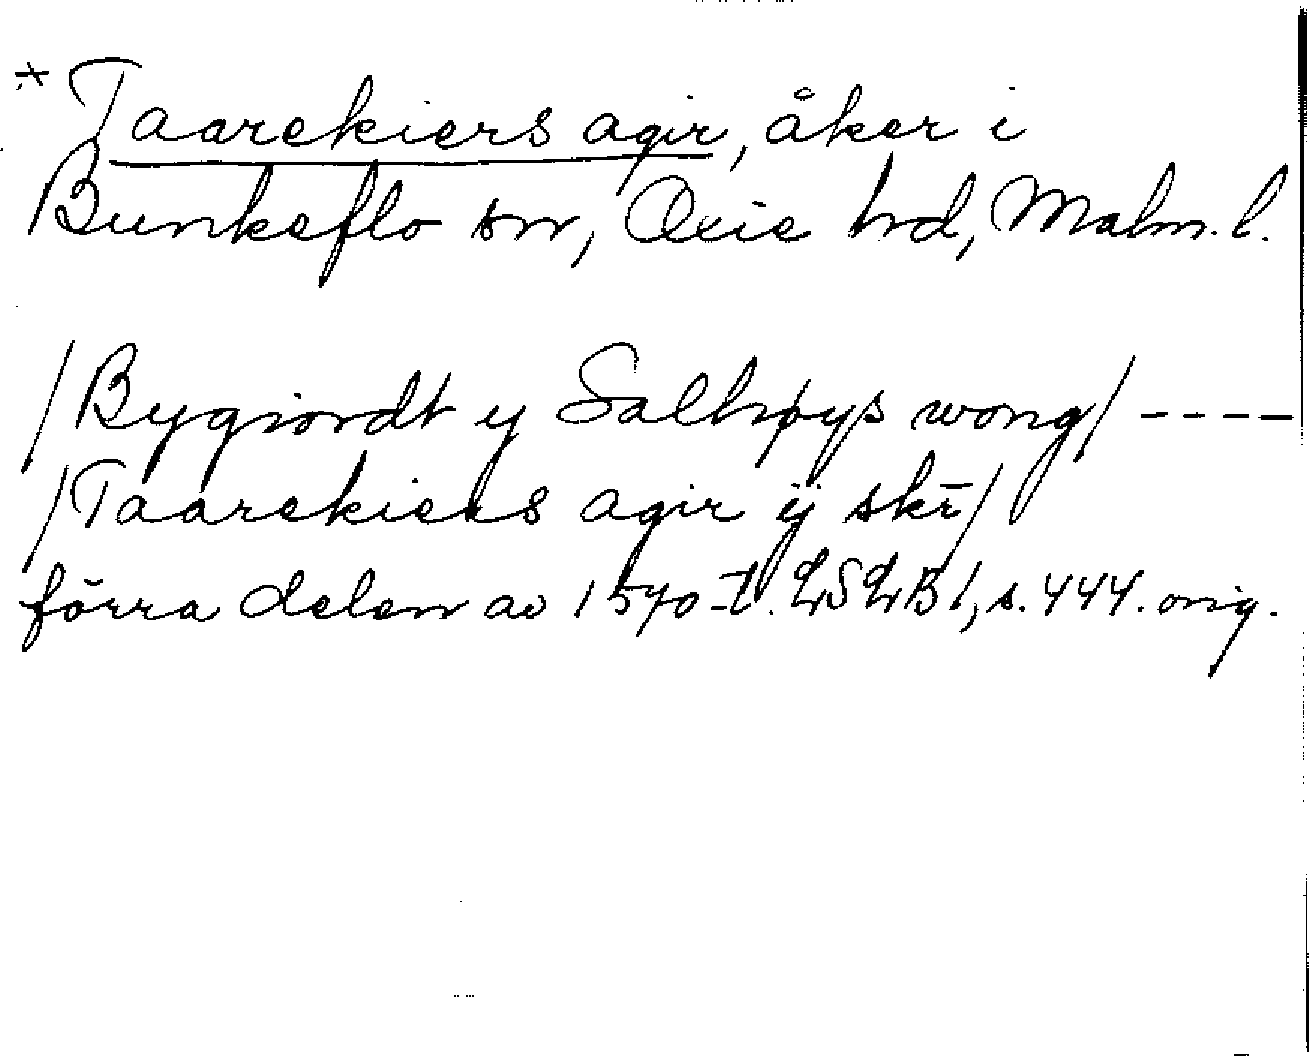 * Taarekiers agir, åker i
Bunkeflo sn, Oxie hd, Malm. l.
/Bygiordt y Salhøys wong/ ----
/Taarekiers agir ij skr̄/
förra delen av 1570-t. LSLB 1, s. 444. orig.